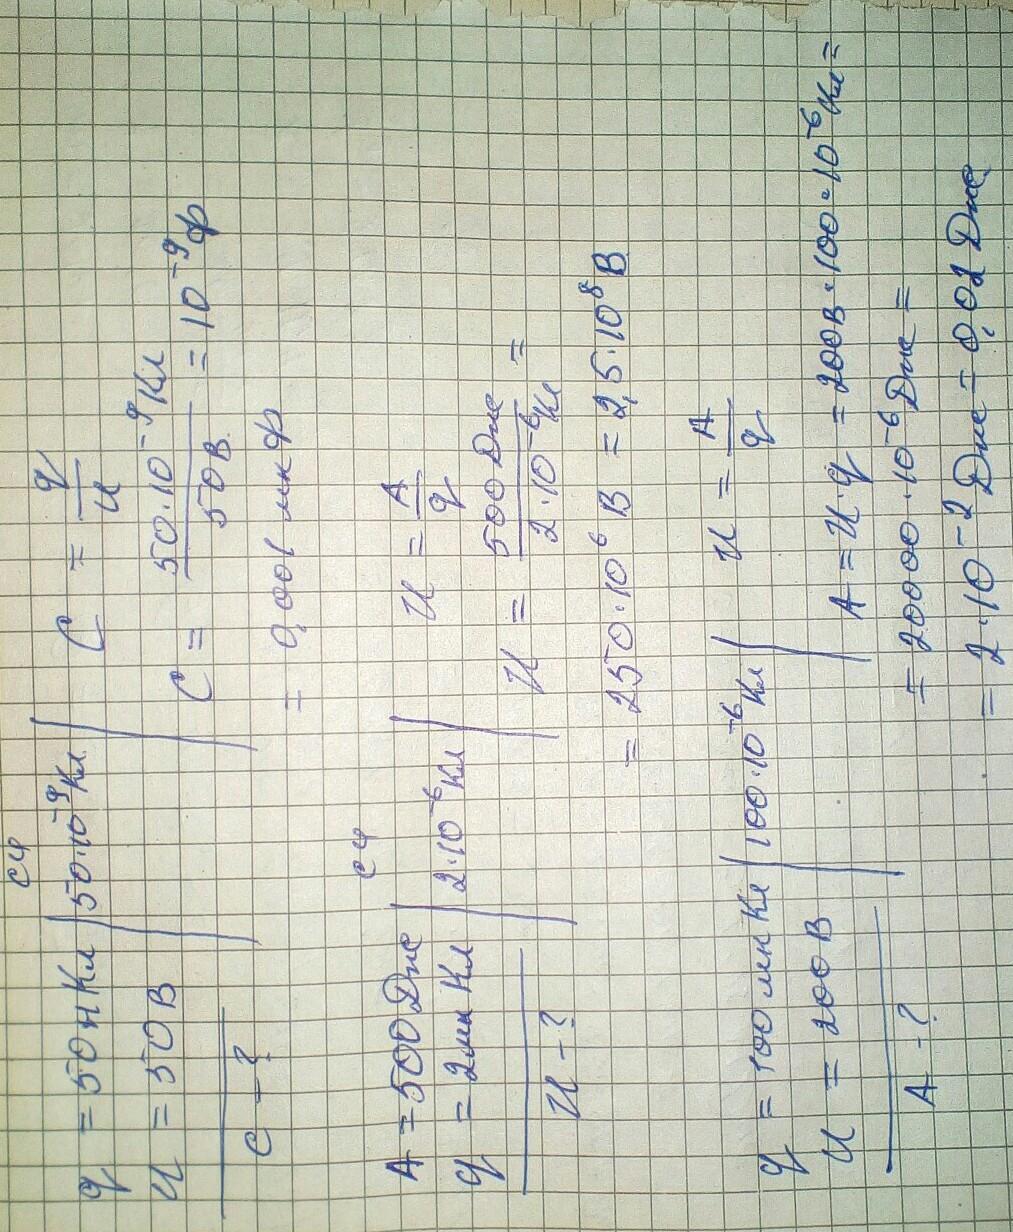 СИ
q = 50 нКл | 50·10⁻⁹Кл | C = q/U
U = 50 В
C = 50·10⁻⁹Кл/50В = 10⁻⁹Ф
C - ?
= 0,001 мкФ
СИ
A = 500 Дж
U = A/q
q = 2мкКл | 2·10⁻⁶Кл
U = 500 Дж/2·10⁻⁶Кл =
U - ?
= 250·10⁶ В = 2,5·10⁸ В
q = 100 мкКл | 100·10⁻⁶Кл | U = A/q
U = 200 В
A = U·q = 200В·100·10⁻⁶Кл =
A - ?
= 20000·10⁻⁶ Дж =
= 2·10⁻² Дж = 0,02 Дж